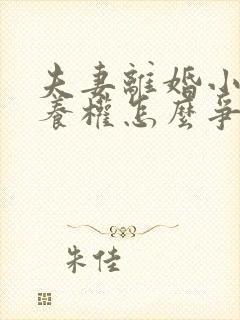 夫妻離婚小
養權怎麼爭
朱佳